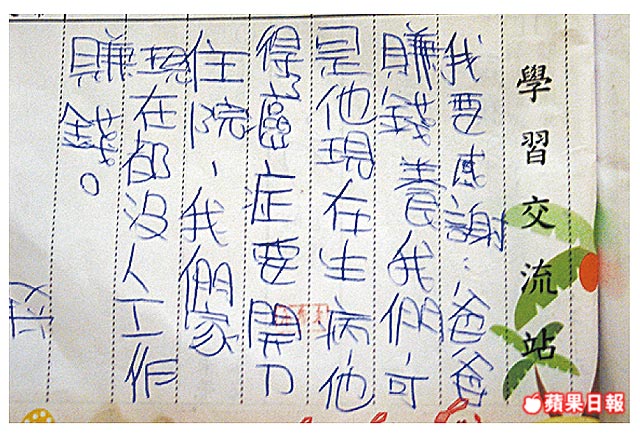 學習交流站
我要感謝：爸爸
賺錢養我們可
是他現在生病，他
得了癌症要開刀
住院，我們家
現在都沒人工作
賺錢。
蘋果日報